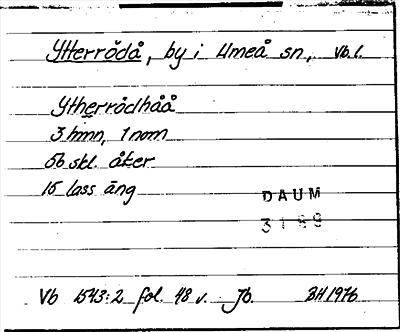 Ytterrödå, by i Umeå sn, Vb. l.
Ytherrödhåå
3 hmn, 1 nomn
56 skl. åker
15 lass äng
DAUM
3189
Vb 1543:2 fol. 48 v. Jb. BH 1976